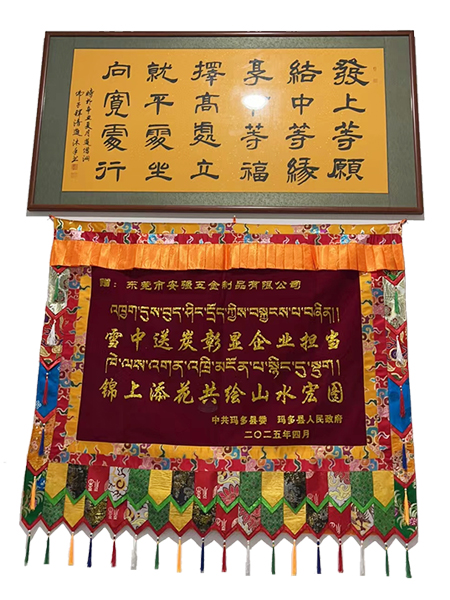 發上等願
結中等緣
享下等福
擇高處立
就平處坐
向寬處行
赠：东莞市 五金制品有限公司
འཁྱག་དུས་བུད་ཤིང་དྲོད་ཀྱིས་པ་སྐྱངས་པ་བཞིན།།
雪中送炭彰显企业担当
ཁེ་ལས་འགན་འཁྲི་མངོན་པ་སྙིང་དུ་སྡུག།
锦上添花共绘山水宏图
中共玛多县委 玛多县人民政府
二〇二五年四月